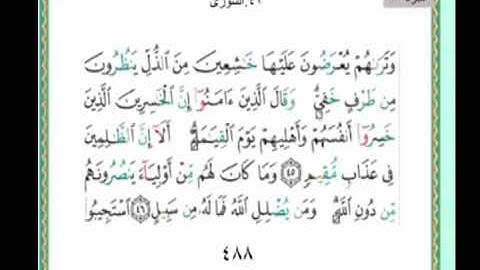 ٤٢.الشورى
وَتَرَىٰهُمْ يُعْرَضُونَ عَلَيْهَا خَٰشِعِينَ مِنَ ٱلذُّلِّ يَنظُرُونَ
مِن طَرْفٍ خَفِىٍّ ۗ وَقَالَ ٱلَّذِينَ ءَامَنُوٓا۟ إِنَّ ٱلْخَٰسِرِينَ ٱلَّذِينَ
خَسِرُوٓا۟ أَنفُسَهُمْ وَأَهْلِيهِمْ يَوْمَ ٱلْقِيَٰمَةِ ۗ أَلَآ إِنَّ ٱلظَّٰلِمِينَ
فِى عَذَابٍ مُّقِيمٍ ٤٥ وَمَا كَانَ لَهُم مِّنْ أَوْلِيَآءَ يَنصُرُونَهُم
مِّن دُونِ ٱللَّهِ ۗ وَمَن يُضْلِلِ ٱللَّهُ فَمَا لَهُۥ مِن سَبِيلٍ ٤٦ ٱسْتَجِيبُوا۟
٤٨٨